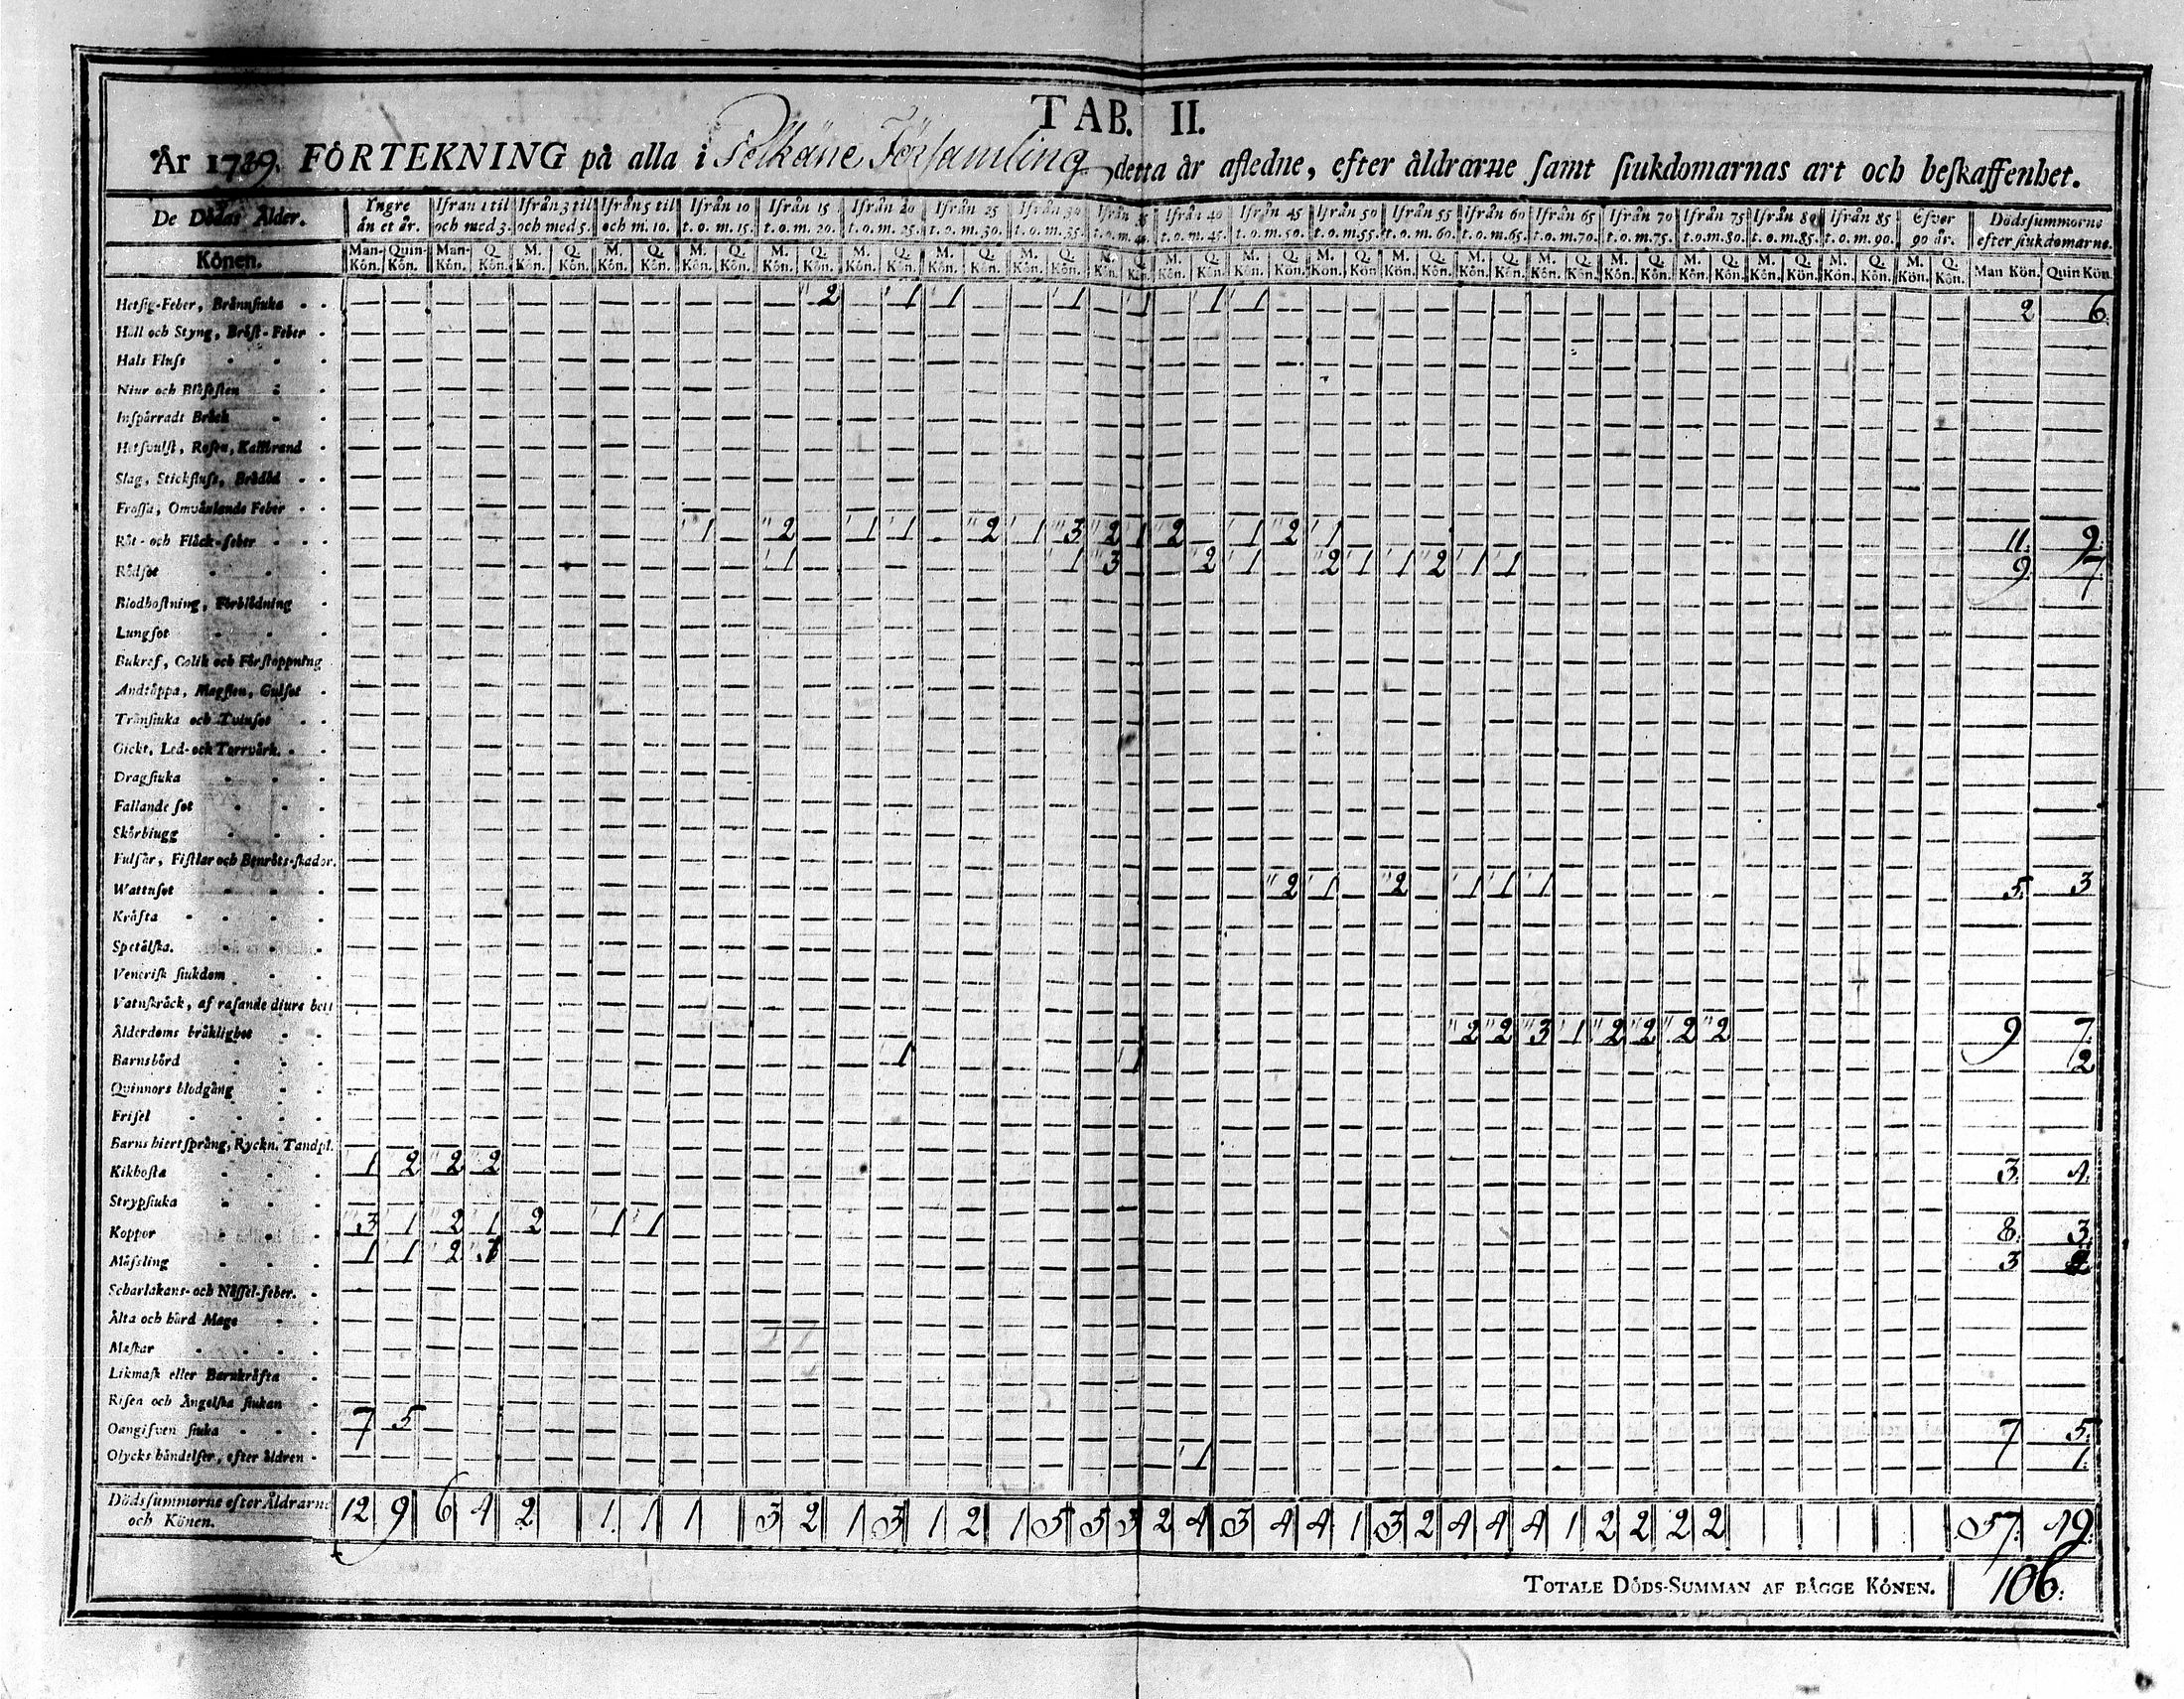 TAB. II.
År 1789. FÖRTEKNING på alla i Pelkäne Församling detta år afledne, efter åldrarne samt siukdomarnas art och beskaffenhet.
De Dödas Ålder. Yngre än et år. Ifrån 1 til och med 3. Ifrån 3 til och med 5. Ifrån 5 til och m. 10. Ifrån 10 t. o. m. 15. Ifrån 15 t. o. m. 20. Ifrån 20 t. o. m. 25. Ifrån 25 t. o. m. 30. Ifrån 30 t. o. m. 35. Ifrån 35 t. o. m. 40. Ifrån 40 t. o. m. 45. Ifrån 45 t. o. m. 50. Ifrån 50 t. o. m. 55. Ifrån 55 t. o. m. 60. Ifrån 60 t. o. m. 65. Ifrån 65 t. o. m. 70. Ifrån 70 t. o. m. 75. Ifrån 75 t. o. m. 80. Ifrån 80 t. o. m. 85. Ifrån 85 t. o. m. 90. Efver 90 år. Dödssummorne efter siukdomarne.
Könen. Man-Kön. Quin-Kön. Man-Kön. Q. Kön. M. Kön. Q. Kön. M. Kön. Q. Kön. M. Kön. Q. Kön. M. Kön. Q. Kön. M. Kön. Q. Kön. M. Kön. Q. Kön. M. Kön. Q. Kön. M. Kön. Q. Kön. M. Kön. Q. Kön. M. Kön. Q. Kön. M. Kön. Q. Kön. M. Kön. Q. Kön. M. Kön. Q. Kön. M. Kön. Q. Kön. M. Kön. Q. Kön. M. Kön. Q. Kön. M. Kön. Q. Kön. M. Kön. Q. Kön. M. Kön. Q. Kön. Man Kön. Quin Kön.
Hetsig-Feber, Brännsiuka 2 1 1 1 1 1 1 2 6
Håll och Styng, Bröst-Feber
Hals Fluss
Niur och Blåsesten
Inspärradt Bråck
Hetsvulst, Rosen, Kallbrand
Slag, Stickfluss, Brådöd
Frossa, Omväxlande Feber
Röt- och Fläck-feber 1 2 1 1 2 1 3 2 1 2 1 2 1 11. 9.
Rödsot 1 1 3 2 1 2 1 1 2 1 1 9 7.
Blodhostning, Förblödning
Lungsot
Bukref, Colik och Förstoppning
Andtäppa, Magsten, Gulsot
Trånsiuka och Tvinsot
Gickt, Led- och Torrvärk.
Dragsiuka
Fallande sot
Skörbiugg
Fulsår, Fistlar och Benröts-skador.
Wattusot 2 1 2 1 1 1 5 3
Kräfta
Spetälska.
Venerisk siukdom
Vatuskräck, af rasande diurs bett
Ålderdoms bräklighet 2 2 3 1 2 2 2 2 9 7.
Barnsbörd 1 1 2
Quinnors blodgång
Frisel
Barns hiertsprång, Ryckn. Tandpl.
Kikhosta 1 2 2 2 3. 4.
Strypsiuka
Koppor 3 1 2 1 2 1 1 8. 3.
Mässling 1 1 2 1 3 2
Scharlakans- och Nässel-feber.
Älta och hård Mage
Maskar
Likmask eller Barnkräfta
Risen och Ängelska siukan
Oangifven siuka 7 5 7 5.
Olycks händelser, efter åldren 1 1.
Dödssummorne efter Åldrarne och Könen. 12 9 6 4 2 1 1 1 3 2 1 3 1 2 1 5 5 3 2 4 3 4 4 1 3 2 4 4 4 1 2 2 2 2 57. 49.
TOTALE DÖDS-SUMMAN AF BÅGGE KÖNEN. 106.